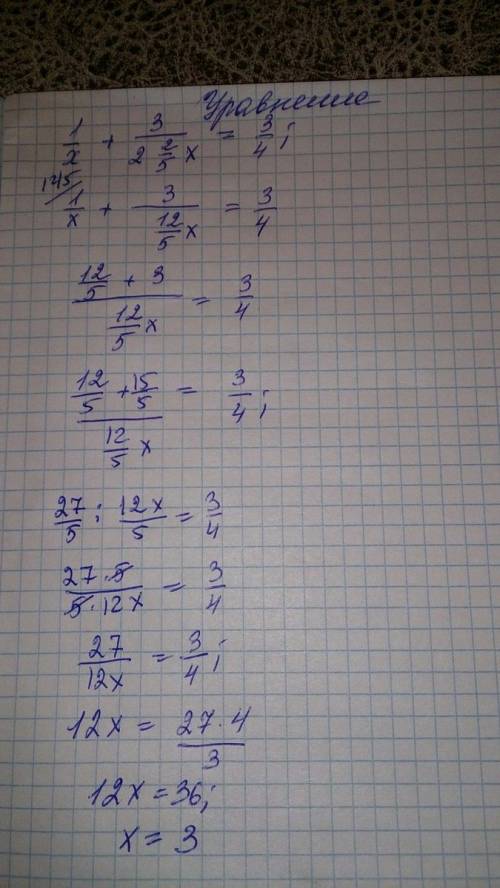 Уравнение
1/x + 3/(2 2/5 x) = 3/4;
12/5
1/x + 3/(12/5 x) = 3/4
(12/5 + 3)/(12/5 x) = 3/4
(12/5 + 15/5)/(12/5 x) = 3/4;
27/5 : 12x/5 = 3/4
(27·5)/(5·12x) = 3/4
27/12x = 3/4;
12x = (27·4)/3
12x = 36;
x = 3